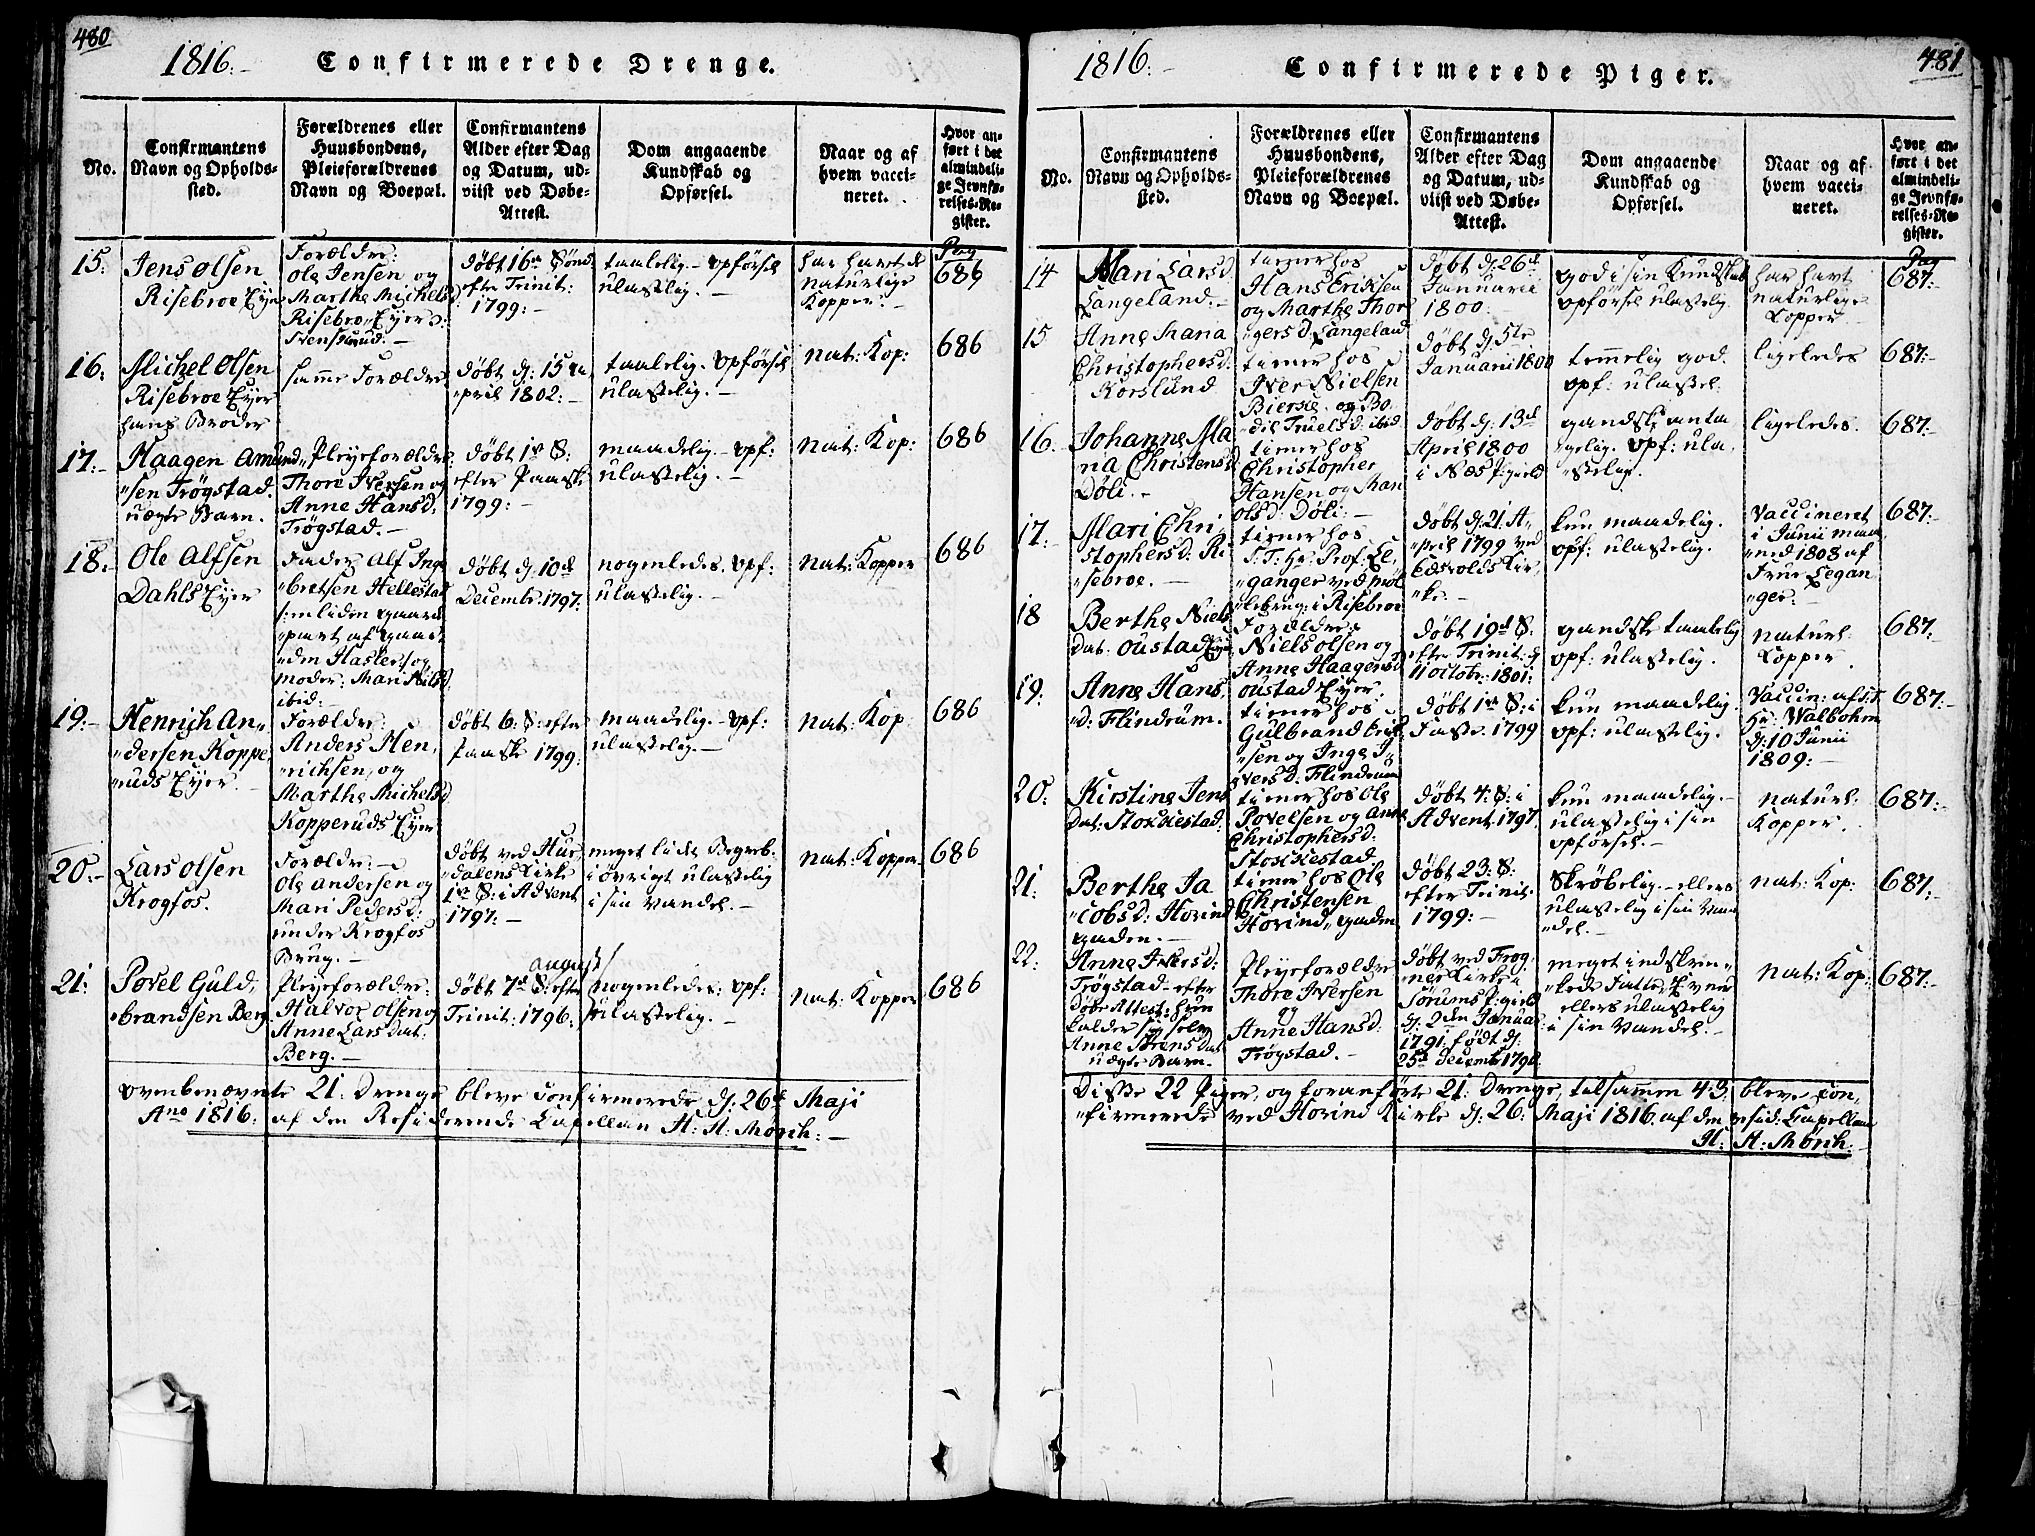 480
1816.-
Confirmerede Drenge.
No.
Confirmantens
Navn og Opholds-
sted.
Forældrenes eller
Huusbondens,
Pleieforældrenes
Navn og Boepæl.
Confirmantens
Alder efter Dag
og Datum, ud-
viist ved Døbe-
Attest.
Dom angaaende
Kundskab og
Opførsel.
Naar og af
hvem vacci-
neret.
Hvor an-
ført i det
almindeli-
ge Jevnfø-
relses-Re-
gister.
Pag
15:
Jens Olsen
Risebroe Eyer
Forældre:
Ole Jensen og
Marthe Michelsd
Risebroe Eyer
Svenskerud.-
døbt 16de Sønd:
efter Trinit:
1799:-
taalelig.- opførsel
ulastelig.-
har havt de
naturlige
Kopper.
686
16:
Michel Olsen
Risebroe Eyer
hans Broder
samme Forældre
døbt d: 15 A
"pril 1802:-
taalelig. opførsel
ulastelig.-
nat: Kop:
686
17:-
Haagen Amund„
"sen Trøgstad.
uægte Barn.
Pleyeforældre:
Thore Iversen og
Anne Hansd,
Trøgstad.-
døbt 1ste S:
efter Paaske
1799:-
maadelig.- opf:
ulastelig.-
nat: Kop:
686
18:
Ole Alfsen
Dahls Eyer
Fader Alf Inge
"bretsen Hellestad
 en liden gaard
"part af gaar
"den Hasler, og
Moder: Mari Nilsd.
ibid:-
døbt d: 10de
Decembr: 1797:
nogenledes. opf:
ulastelig.-
nat: Kopper
686
19:-
Henrich An„
"dersen Koppe„
"ruds Eyer.
Forældre:
Anders Hen„
"richsen, og
Marthe Michelsd
Kopperuds Eyer
døbt 6: S: efter
Paaske 1799:
maadelig.- opf:
ulastelig.-
nat: Kop:
686
20:-
Lars Olsen
Krogfos.
Forældre:-
Ole Andersen og
Mari Pedersd:
under Krogfos
Brug.-
døbt ved Hur„
"dalens Kirke
1ste S: i Advent
1797:-
meget liden Begreb-
i øvrigt ulastelig
i sin Vandel.-
nat: Kopper
686
21:
Povel Guld„
"brandsen Berg
Pleyeforældre:
Halvor Olsen og
Anne Lars Dat:
Berg.-
august
døbt 7de S: efter
Trinit: 1796:
nogenledes: opf:
ulastelig.-
nat: Kopper
686
ovenbenævnte 21: Drenge bleve confirmerede d: 26de Maji
Ano 1816. af den Residerende Capellan H: A: Mørch:-
481
1816:-
Confirmerede Piger.
No.
Confirmantens
Navn og Opholds-
sted.
Forældrenes eller
Huusbondens,
Pleieforældrenes
Navn og Boepæl.
Confirmantens
Alder efter Dag
og Datum, ud-
viist ved Døbe-
Attest.
Dom angaaende
Kundskab og
Opførsel.
Naar og af
hvem vacci-
neret.
Hvor an-
ført i det
almindeli-
ge Jevnfø-
relses-Re-
gister.
Pag
14
Mari Larsd.
Langeland.-
tiener hos
Hans Eriksen
og Marthe Thor
"gersd Langeland
døbt d: 26de
Januarii
1800:
god i sin Kundskab
opførsel ulastelig
har havt
naturlige
Kopper
687:-
15
Anne Maria
Christophersd:
Korslund
tiener hos
Iver Nielsen
Biersie. og Bo
"dil Truelsd: ibid
døbt d: 5te
Januarii 1800
temmelig god.
opf: ulastel:
ligeledes
687:-
16.
Johanne Ma
ria Christensd
Døli.-
tiener hos
Christopher
Hansen og Mari
Olsd: Døli:-
døbt d: 13de
April 1800
i Næs P:gield
gandske anta
"gelig. opf: ula„
"stelig.
ligeledes
687:-
17:
Mari Chri„
stophersd: Ri
"sebroe.-
tiener hos
S:T: Hr: Prof: El„
"ganger ved Møl
"lebrug: i Risebroe
døbt d: 21: A„
"pril 1799 ved
Eidsvolds Kir„
"ke-
kun maadelig.
opf: ulastelig.
Vaccineret
i Junii maa„
"ned 1808 af
Frue Elgan
"ger:-
687:-
18
Berthe Niels
Dat: Oustad Eyer
Forældre
Niels Olsen og
Anne Haagensd
Oustad Eyer.
døbt 19de S:
efter Trinit: d
11 Octobr: 1801:
gandske taalelig
opf: ulastelig.
naturl:
Kopper.
687:-
19:
Anne Hans„
"d: Flindrum.
tiener hos
Gulbrand Erik
"sen og Inge I„
"versd: Flindrum
døbt 1ste S: i
Faste. 1799
kun maadelig.
opf: ulastelig.
Vaccin: af S:T:
Hr: Walbohm
d: 10 Junii
1809:-
687:-
20:
Kirstine Jens
Dat: Stokkestad.
tiener hos Ole
Povelsen og Anne
Christophersd.
Stokkestad
døbt 4: S: i
Advent 1797.
kun maadelig.-
ulastelig i sin
opførsel.-
naturl:
Kopper.
687:-
21:
Berthe Ja
"cobsd: Hovind
gaden.-
tiener hos Ole
Christensen
Hovind„ gaden
døbt 23: S:
efter Trinit:
1799:-
Skrøbelig.- ellers
ulastelig i sin Van
"del.-
nat: Kop:
687:-
22:
Anne Iversd:
Trøgstad- efter
Døbe Attest: hun
kalder sig selv
Anne Sørens Dat
uægte Barn.-
Pleyeforældre
Thore Iversen
og
Anne Hansd:
Trøgstad.-
døbt ved Frog„
ner Kirke i
Sørums P:gield
d: 2den Januar
1791. født d:
25de Decemb: 1790
meget indskren„
"kede Fatte, Evner
ellers ulastelig
i sin Vandel.-
nat: Kop:
687:-
Disse 22 Piger, og foranførte 21: Drenge, tilsammen 43: bleve con„
"firmerede ved Hovind Kirke d: 26: Maji 1816. af den resid: Capellan
H: A: Mørch:-